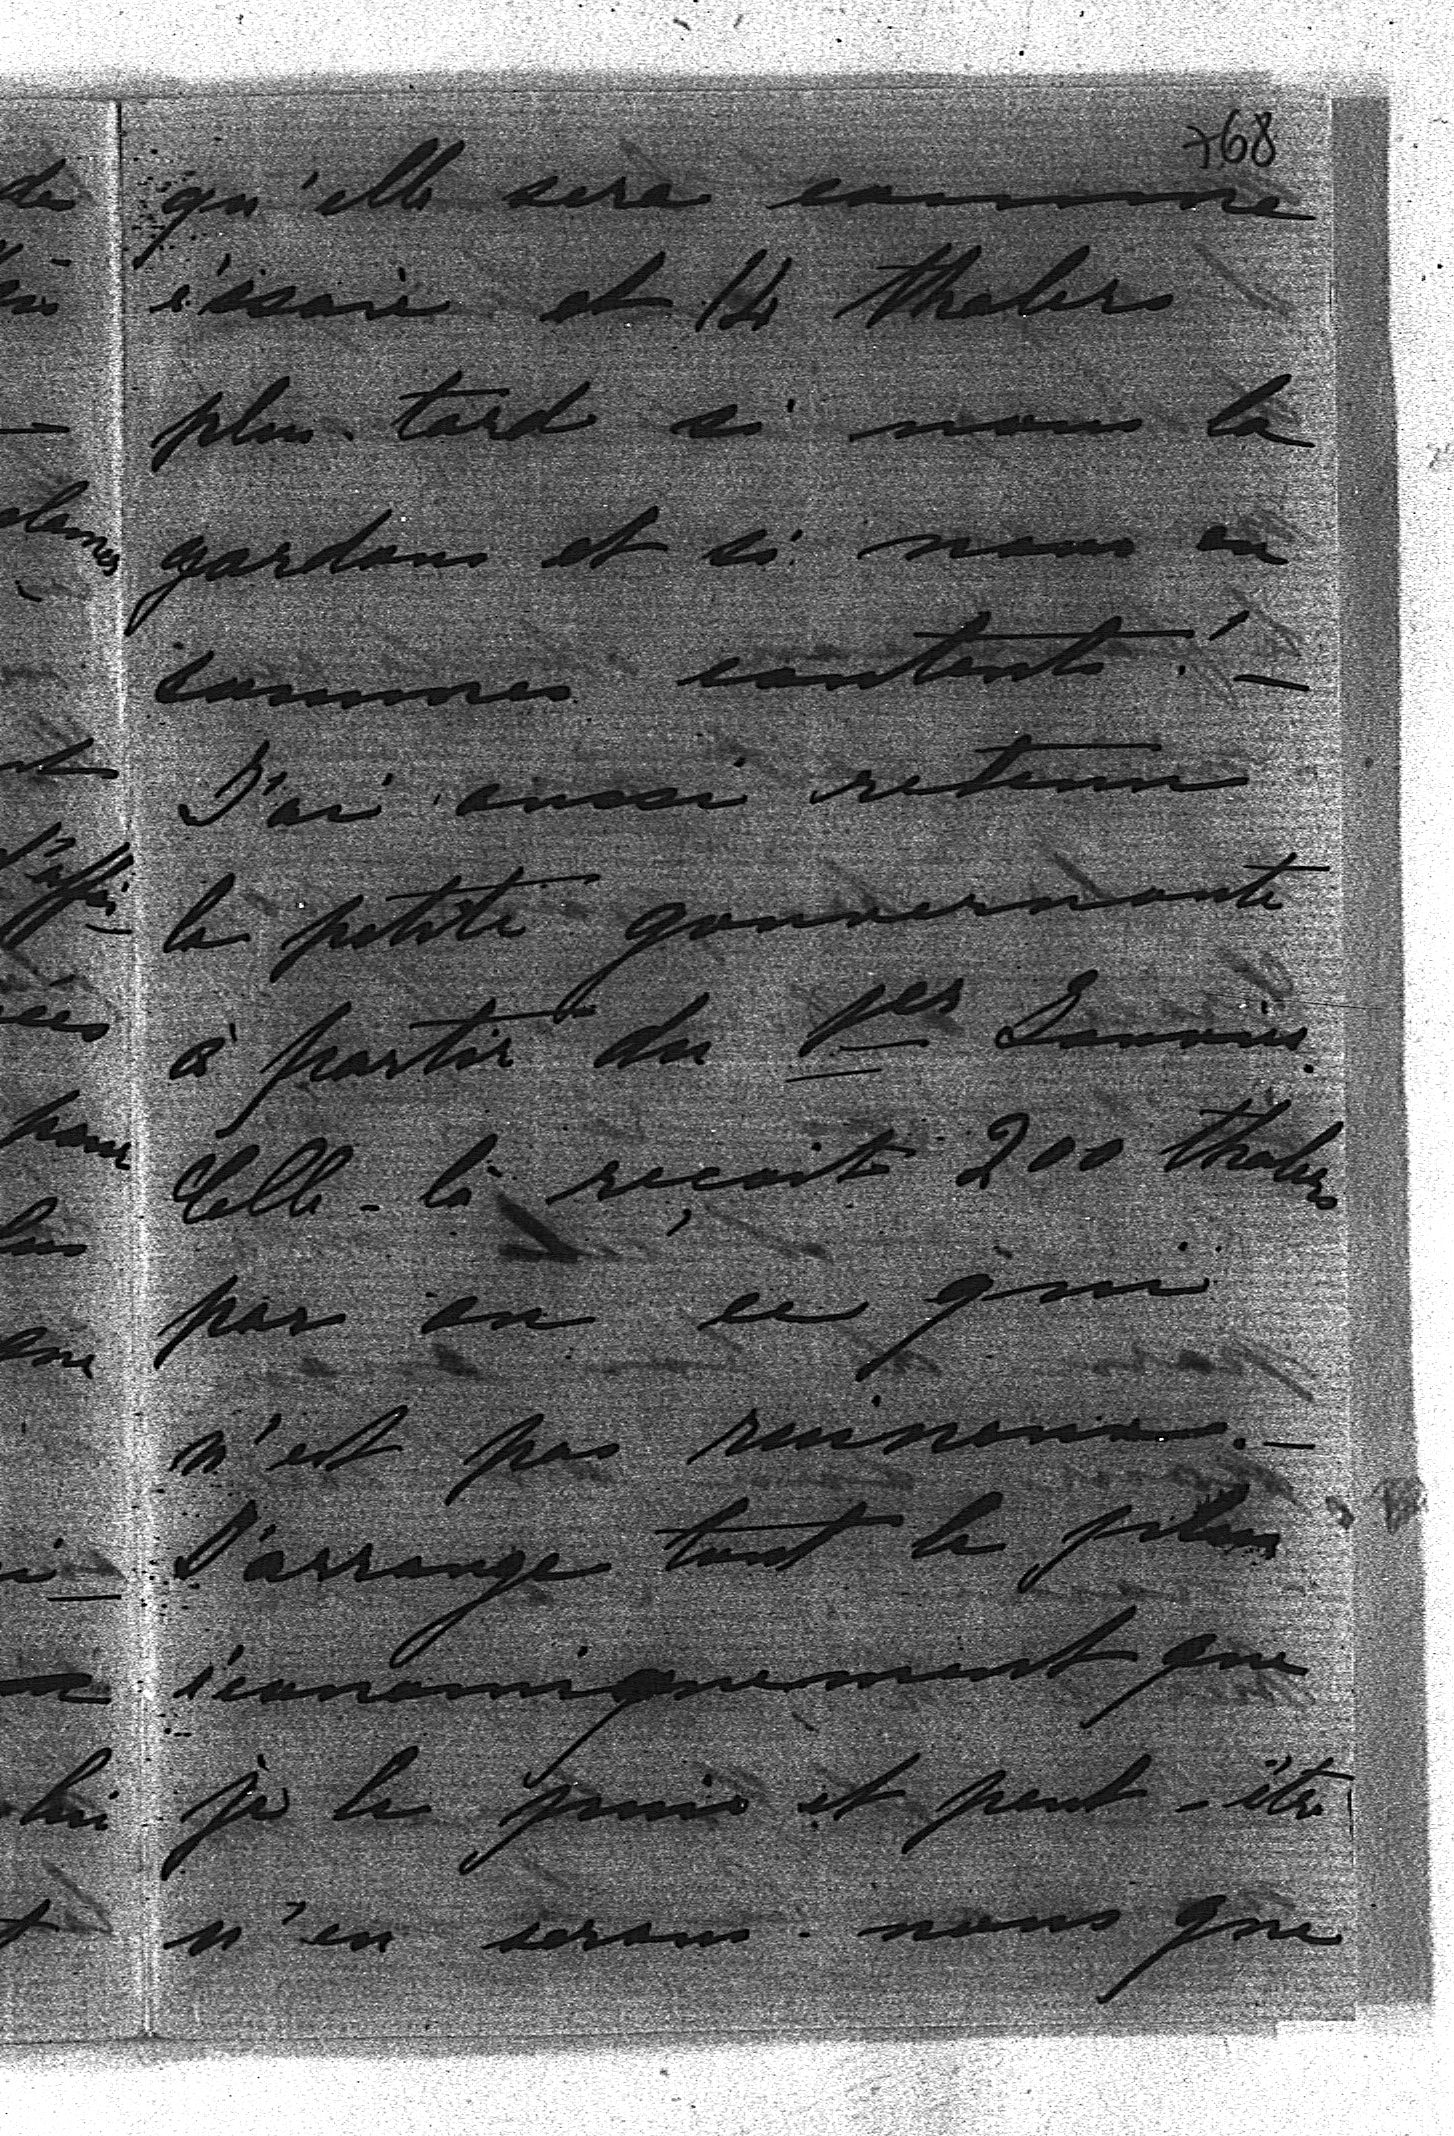 +68
qu'elle sera comme
éssaie et 14 thalers
plus tard si nous la
gardons et si nous en
sommes contents! —
J'ai aussi retenu
la petite gouvernante
à partir du 1er Janvier.
Celle-là reçoit 200 thalers
par an ce qui
n'est pas ruineux. —
J'arrange tout le plus
économiquement que
je le puis et peut-être
n'en serons-nous que